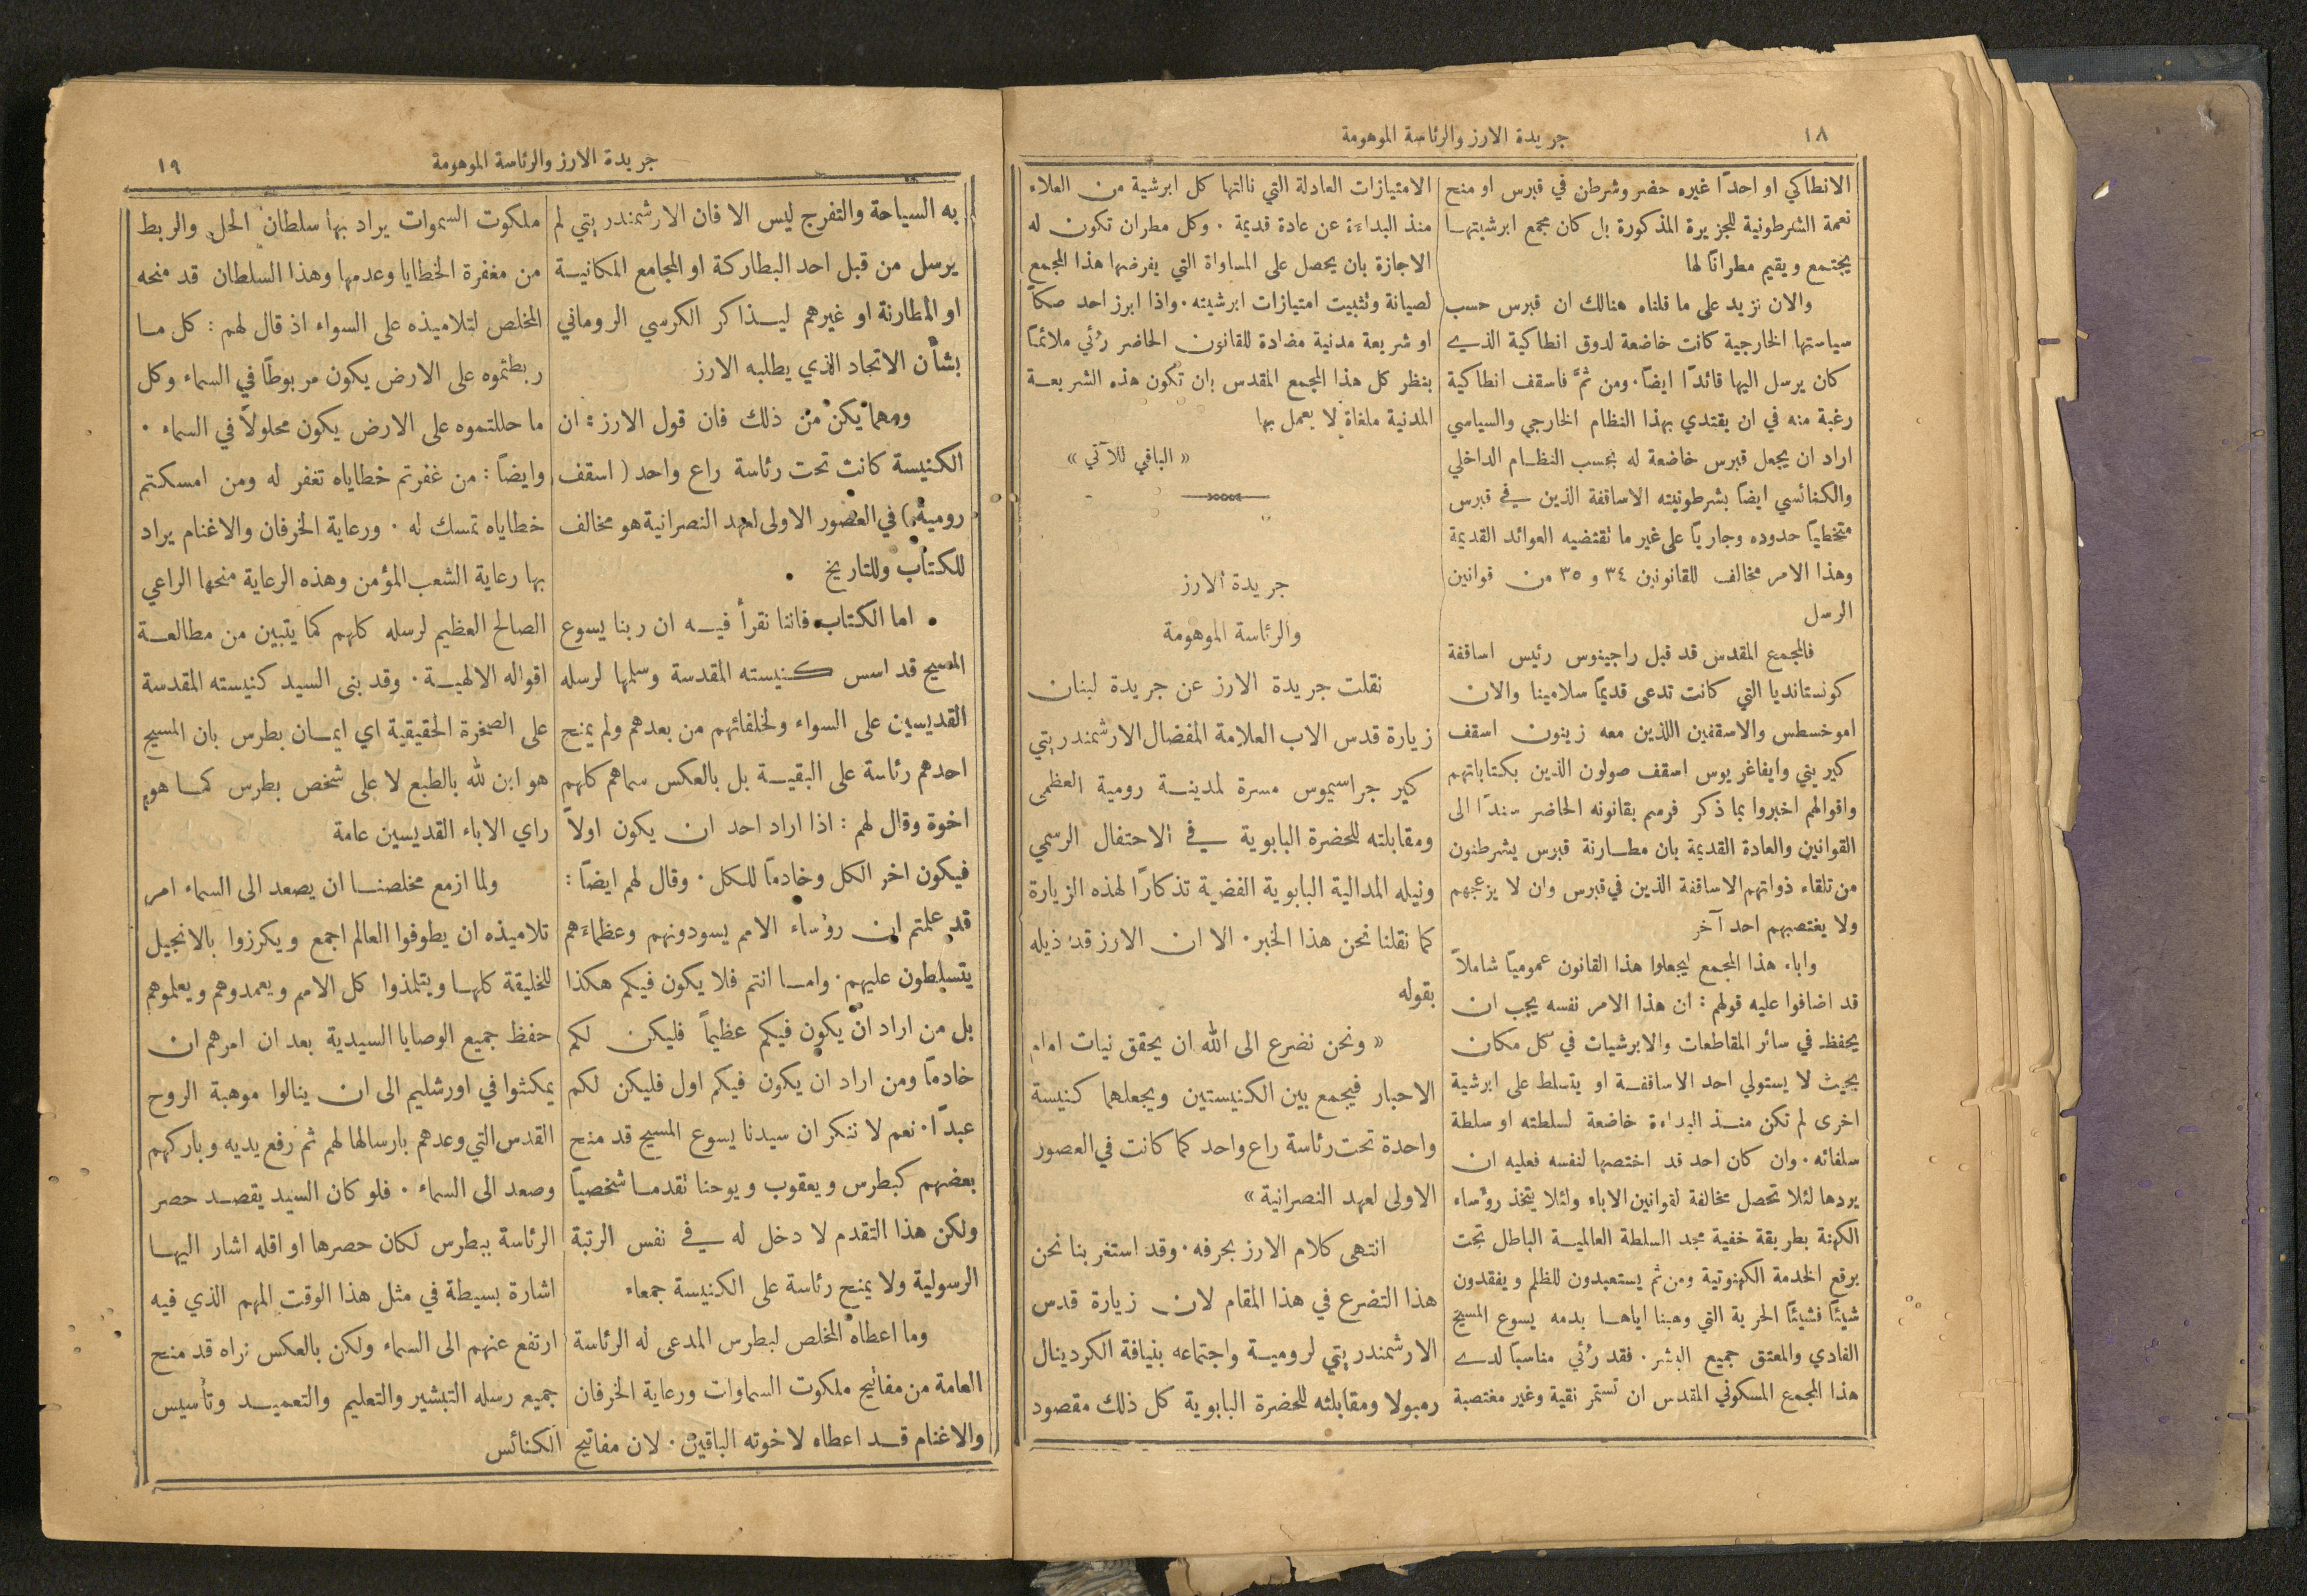 ١٨
جريدة الارز والرئاسة الموهومة
الانطاكي او احدًا غيره حضر وشرطن في قبرس او منح
نعمة الشرطونية للجزيرة المذكورة بل كان مجمع ابرشيتهــا
يجتمع ويقيم مطرانًا لها
والان نزيد على ما قلناه هنالك ان قبرس حسب
سياستها الخارجية كانت خاضعة لدوق انطاكية الذي
كان يرسل اليها قائدًا ايضًا. ومن ثمَّ فاسقف انطاكية
رغبة منه في ان يقتدي بهذا النظام الخارجي والسياسي
اراد ان يجعل قبرس خاضعة له بحسب النظــام الداخلي
والكنائسي ايضًا بشرطونيته الاساقفة الذين في قبرس
متخطيًا حدوده وجاريًا على غير ما تقتضيه العوائد القديمة
وهذا الامر مخالف للقانونين ٣٤ و ٣٥ من قوانين
الرسل
فالمجمع المقدس قد قبل راجينوس رئيس اساقفة
كونستانديا التي كانت تدعى قديمًا سلامينا والان
اموخسطس والاسقفين اللذين معه زينون اسقف
كيريني وايفاغريوس اسقف صولون الذين بكتاباتهم
واقوالهم اخبروا بما ذكر فرسم بقانونه الحاضر سندًا الى
القوانين والعادة القديمة بان مطــارنة قبرس يشرطنون
من تلقاء ذواتهم الاساقفة الذين في قبرس وان لا يزعجهم
ولا يغتصبهم احد آخر
واباء هذا المجمع ليجعلوا هذا القانون عموميًا شاملاً
قد اضافوا عليه قولهم: ان هذا الامر نفسه يجب ان
يحفظ في سائر المقاطعات والابرشيات في كل مكان
بحيث لا يستولي احد الاساقفــة او يتسلط على ابرشية
اخرى لم تكن منــذ البداءة خاضعة لسلطته او سلطة
سلفائه. وان كان احد قد اختصها لنفسه فعليه ان
يردها لئلا تحصل مخالفة لقوانين الاباء ولئلا يتخذ رؤساء
الكهنة بطريقة خفية مجد السلطة العالميــة الباطل تحت
برقع الخدمة الكهنوتية ومن ثم يستعبدون للظلم ويفقدون
شيئًا فشيئًا الحرية التي وهبنا اياهــا بدمه يسوع المسيح
الفادي والمعتق جميع البشر. فقد رُئي مناسبًا لدى
هذا المجمع المسكوني المقدس ان تستمر نقية وغير مغتصبة
الامتيازات العادلة التي نالتها كل ابرشية من العلاء
منذ البداءة عن عادة قديمة. وكل مطران تكون له
الاجازة بان يحصل على المساواة التي يفرضها هذا المجمع
لصيانة وتثبيت امتيازات ابرشيته. واذا ابرز احد صكًا
او شريعة مدنية مضادة للقانون الحاضر رُئي ملائمًا
بنظر كل هذا المجمع المقدس بان تكون هذه الشريعــة
المدنية ملغاة لا يعمل بها
« الباقي للآتي »
جريدة الارز
والرئاسة الموهومة
نقلت جريدة الارز عن جريدة لبنان
زيارة قدس الاب العلامة المفضال الارشمندريتي
كير جراسيموس مسرة لمدينــة رومية العظمى
ومقابلته للحضرة البابوية في الاحتفال الرسمي
ونيله المدالية البابوية الفضية تذكارًا لهذه الزيارة
كما نقلنا نحن هذا الخبر. الا ان الارز قد ذيله
بقوله
« ونحن نضرع الى الله ان يحقق نيات امام
الاحبار فيجمع بين الكنيستين ويجعلهما كنيسة
واحدة تحت رئاسة راع واحد كما كانت في العصور
الاولى لعهد النصرانية »
انتهى كلام الارز بحرفه. وقد استغربنا نحن
هذا التضرع في هذا المقام لان زيارة قدس
الارشمندريتي لروميــة واجتماعه بنيافة الكردينال
رمبولا ومقابلته للحضرة البابوية كل ذلك مقصود
جريدة الارز والرئاسة الموهومة
١٩
به السياحة والتفرج ليس الا فان الارشمندريتي لم
يرسل من قبل احد البطاركة او المجامع المكانيــة
او المطارنة او غيرهم ليــذاكر الكرسي الروماني
بشأن الاتحاد الذي يطلبه الارز
ومهما يكن من ذلك فان قول الارز: ان
الكنيسة كانت تحت رئاسة راع واحد (اسقف
رومية) في العصور الاولى لعهد النصرانية هو مخالف
للكتاب وللتاريخ
اما الكتاب فاننا نقرأ فيــه ان ربنا يسوع
المسيح قد اسس كنيسته المقدسة وسلمها لرسله
القديسين على السواء ولخلفائهم من بعدهم ولم يمنح
احدهم رئاسة على البقيــة بل بالعكس سماهم كلهم
اخوة وقال لهم: اذا اراد احد ان يكون اولاً
فيكون اخر الكل وخادمًا للكل. وقال لهم ايضًا:
قد علمتم ان رؤساء الامم يسودونهم وعظماءهم
يتسلطون عليهم. وامــا انتم فلا يكون فيكم هكذا
بل من اراد ان يكون فيكم عظيمًا فليكن لكم
خادمًا ومن اراد ان يكون فيكم اول فليكن لكم
عبدًا. نعم لا ننكر ان سيدنا يسوع المسيح قد منح
بعضهم كبطرس ويعقوب ويوحنا تقدمــا شخصيًا
ولكن هذا التقدم لا دخل له في نفس الرتبة
الرسولية ولا يمنح رئاسة على الكنيسة جمعاء
وما اعطاه المخلص لبطرس المدعى له الرئاسة
العامة من مفاتيح ملكوت السماوات ورعاية الخرفان
والاغنام قــد اعطاه لاخوته الباقين. لان مفاتيح الكنائس
ملكوت السموات يراد بها سلطان الحل والربط
من مغفرة الخطايا وعدمها وهذا السلطان قد منحه
المخلص لتلاميذه على السواء اذ قال لهم: كل مــا
ربطتموه على الارض يكون مربوطًا في السماء وكل
ما حللتموه على الارض يكون محلولاً في السماء.
وايضًا: من غفرتم خطاياه تغفر له ومن امسكتم
خطاياه تمسك له. ورعاية الخرفان والاغنام يراد
بها رعاية الشعب المؤمن وهذه الرعاية منحها الراعي
الصالح العظيم لرسله كلهم كما يتبين من مطالعــة
اقواله الالهيــة. وقد بنى السيد كنيسته المقدسة
على الصخرة الحقيقية اي ايمــان بطرس بان المسيح
هو ابن لله بالطبع لا على شخص بطرس كمــا هو
راي الاباء القديسين عامة
ولما ازمع مخلصنــا ان يصعد الى السماء امر
تلاميذه ان يطوفوا العالم اجمع ويكرزوا بالانجيل
للخليقة كلهــا ويتلمذوا كل الامم ويعمدوهم ويعلموهم
حفظ جميع الوصايا السيدية بعد ان امرهم ان
يمكثوا في اورشليم الى ان ينالوا موهبة الروح
القدس التي وعدهم بارسالها لهم ثم رفع يديه وباركهم
وصعد الى السماء. فلو كان السيد يقصــد حصر
الرئاسة ببطرس لكان حصرها او اقله اشار اليهــا
اشارة بسيطة في مثل هذا الوقت المهم الذي فيه
ارتفع عنهم الى السماء ولكن بالعكس نراه قد منح
جميع رسله التبشير والتعليم والتعميــد وتأسيس